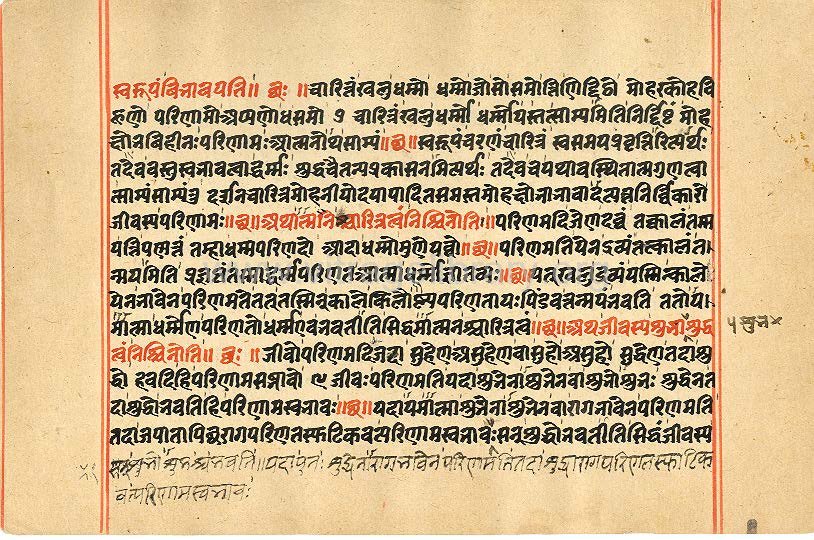 स्वरूपं विभावयति॥ छः ॥ चारित्तं खलु धम्मो धम्मो जो सो समो त्ति णिद्दिट्ठो मोहक्खोहवि
हीणो परिणामो अप्पणो ध समो ७ चारित्रं खलु धर्म्मो धर्म्मो यस्तत्साम्यमिति निर्दिष्टं मोह
क्षोभविहीनः परिणामः आत्मनो साम्यं॥छ॥ स्वरूपे चरणं चारित्रं स्वसमयप्रवृत्तिरित्यर्थः
तदेव वस्तुस्वभावत्वाद्धर्मः शुद्धचैतन्यप्रकाशनमित्यर्थः तदेव च यथावस्थितात्मगुणत्वा
त्साम्यं साम्यं तु दर्शनचारित्रमोहनीयोदयापादितसमस्तमोहक्षोभाभावादत्यंतनिर्विकारो
जीवस्य परिणामः॥छ॥ अथात्मनश्चारित्रत्वं निश्चिनोति॥ परिणमदि जेण दव्वं तक्कालं तम्म
यत्ति पणत्तं तम्हा धम्मपरिणदो आदा धम्मो मुणेयव्वो॥छ॥ परिणमति येन द्रव्यं तत्कालं त
न्मयमिति प्रज्ञप्तं तस्माद्धर्मपरिणत आत्मा धर्म्मो ज्ञातव्यः॥छ॥ यत्खलु द्रव्यं यस्मिन्काले
येन भावेन परिणमति तत् तस्मिन् काले किलौष्ण्यपरिणतायःपिंडवत्तन्मयं भवति ततोय
मात्मा धर्म्मेण परिणतो धर्म्म एव भवतीति सिद्धमात्मनश्चारित्रत्वं॥छ॥ अथ जीवस्य शुभाशुभशुद्ध
त्वं निश्चिनोति॥ छः ॥ जीवो परिणमदि जदा सुहेण असुहेण वा सुहो असुहो सुद्धेण तदा सु
द्धो हवदि हि परिणामसब्भावो ९ जीवः परिणमति यदा शुभेनाशुभेन वा शुभोशुभः शुद्धेन त
दा शुद्धो भवति हि परिणामस्वभावः॥छ॥ यदायमात्मा शुभेनाशुभेन वा रागभावेन परिणमति
तदा जपातापिच्छरागपरिणतस्फटिकवत्परिणामस्वभावः सन् शुद्धो भवतीति सिद्धं जीवस्य
शुभो शुभश्च भवति॥ यदा पुनः शुद्धेनारागभावेन परिणमति तदा शुद्धारागपरिणतस्फाटिक
वत्परिणामस्वभावः